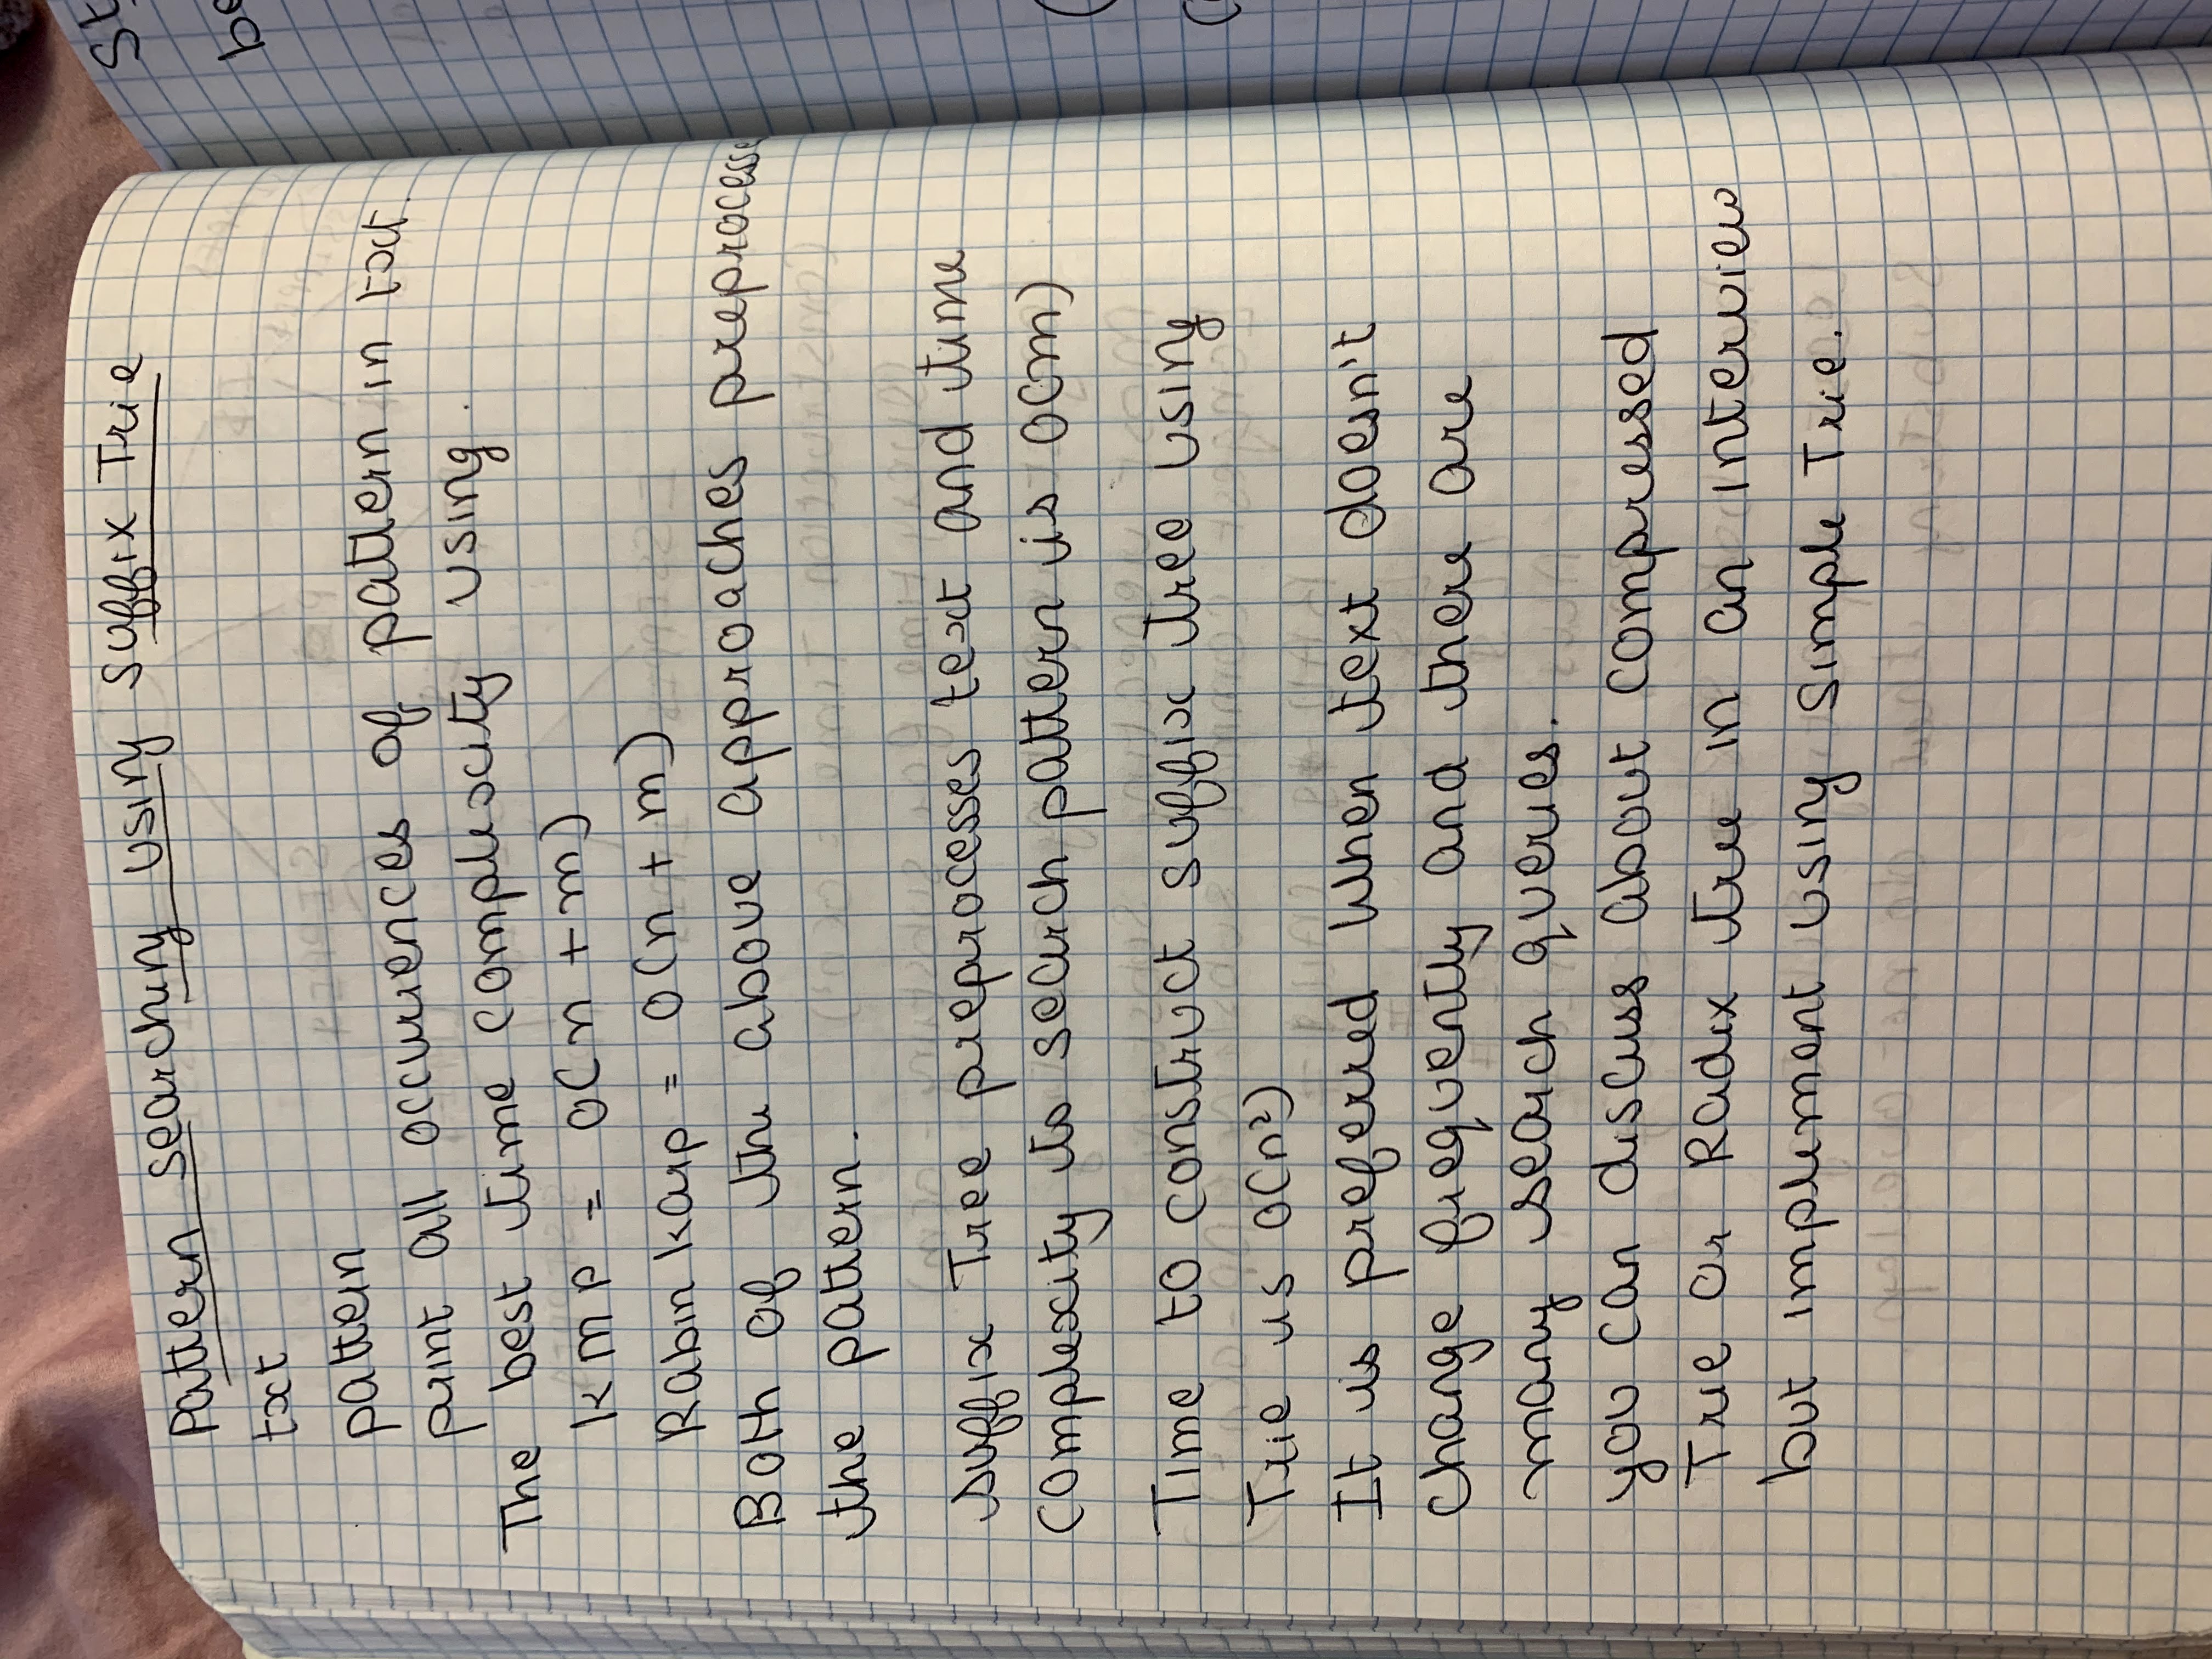 Pattern searching using suffix Trie
txt
pattern
print all occurrences of pattern in txt.
The best time complexity using.
KMP = O(n + m)
Rabin karp = O(n + m)
Both of the above approaches preprocesse
the pattern.
suffix Tree preprocesses text and time
complexity to search pattern is O(m)
Time to construct suffix tree using
Trie is O(n²)
It is preferred when text doesn't
change frequently and there are
many search queries.
you can discuss about compressed
Trie or Radix tree in an interview
but implement using simple Trie.
St
be